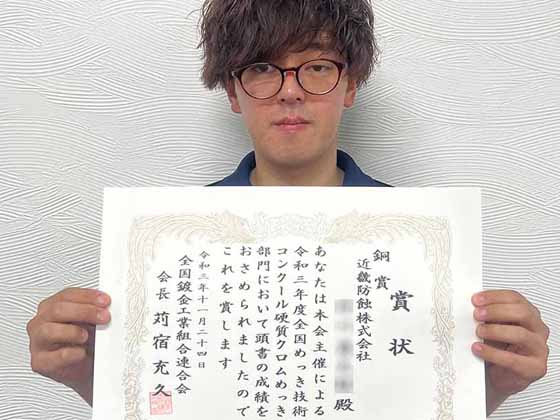 賞状
銅賞
近畿防蝕株式会社
殿
あなたは本会主催による
令和三年度全国めっき技術
コンクール硬質クロムめっき
部門において頭書の成績を
おさめられましたので
これを賞します
令和三年十一月二十四日
全国鍍金工業組合連合会
会長 苅宿充久